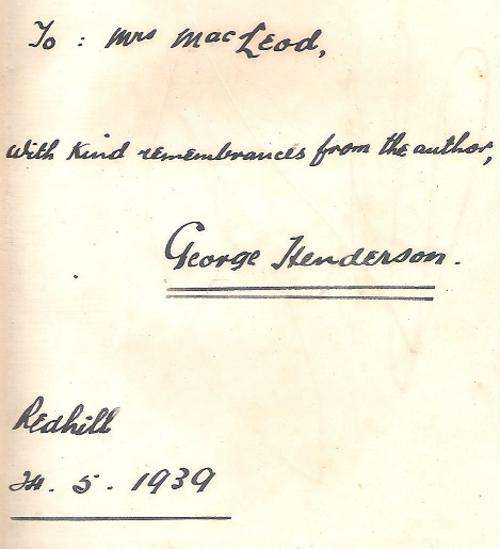 To : Mrs MacLeod,
with kind remembrances from the author,
George Henderson.
Redhill
24. 5. 1939